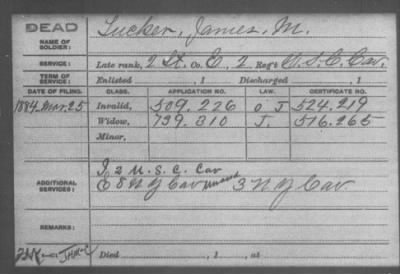 DEAD
NAME OF SOLDIER: Tucker, James, M.
SERVICE: Late rank, 2 Lt. Co. E, 2 Reg't U.S.C. Cav.
TERM OF SERVICE: Enlisted , 1 Discharged , 1
DATE OF FILING. CLASS. APPLICATION NO. LAW. CERTIFICATE NO.
1884 Mar. 25 Invalid, 509.226 O J 524.219
Widow, 739.310 J. 516.265
Minor,
ADDITIONAL SERVICES: I 2 U.S.C. Cav
E 8 N Y Cav 3 N Y Cav
REMARKS:
Died , 1 , at